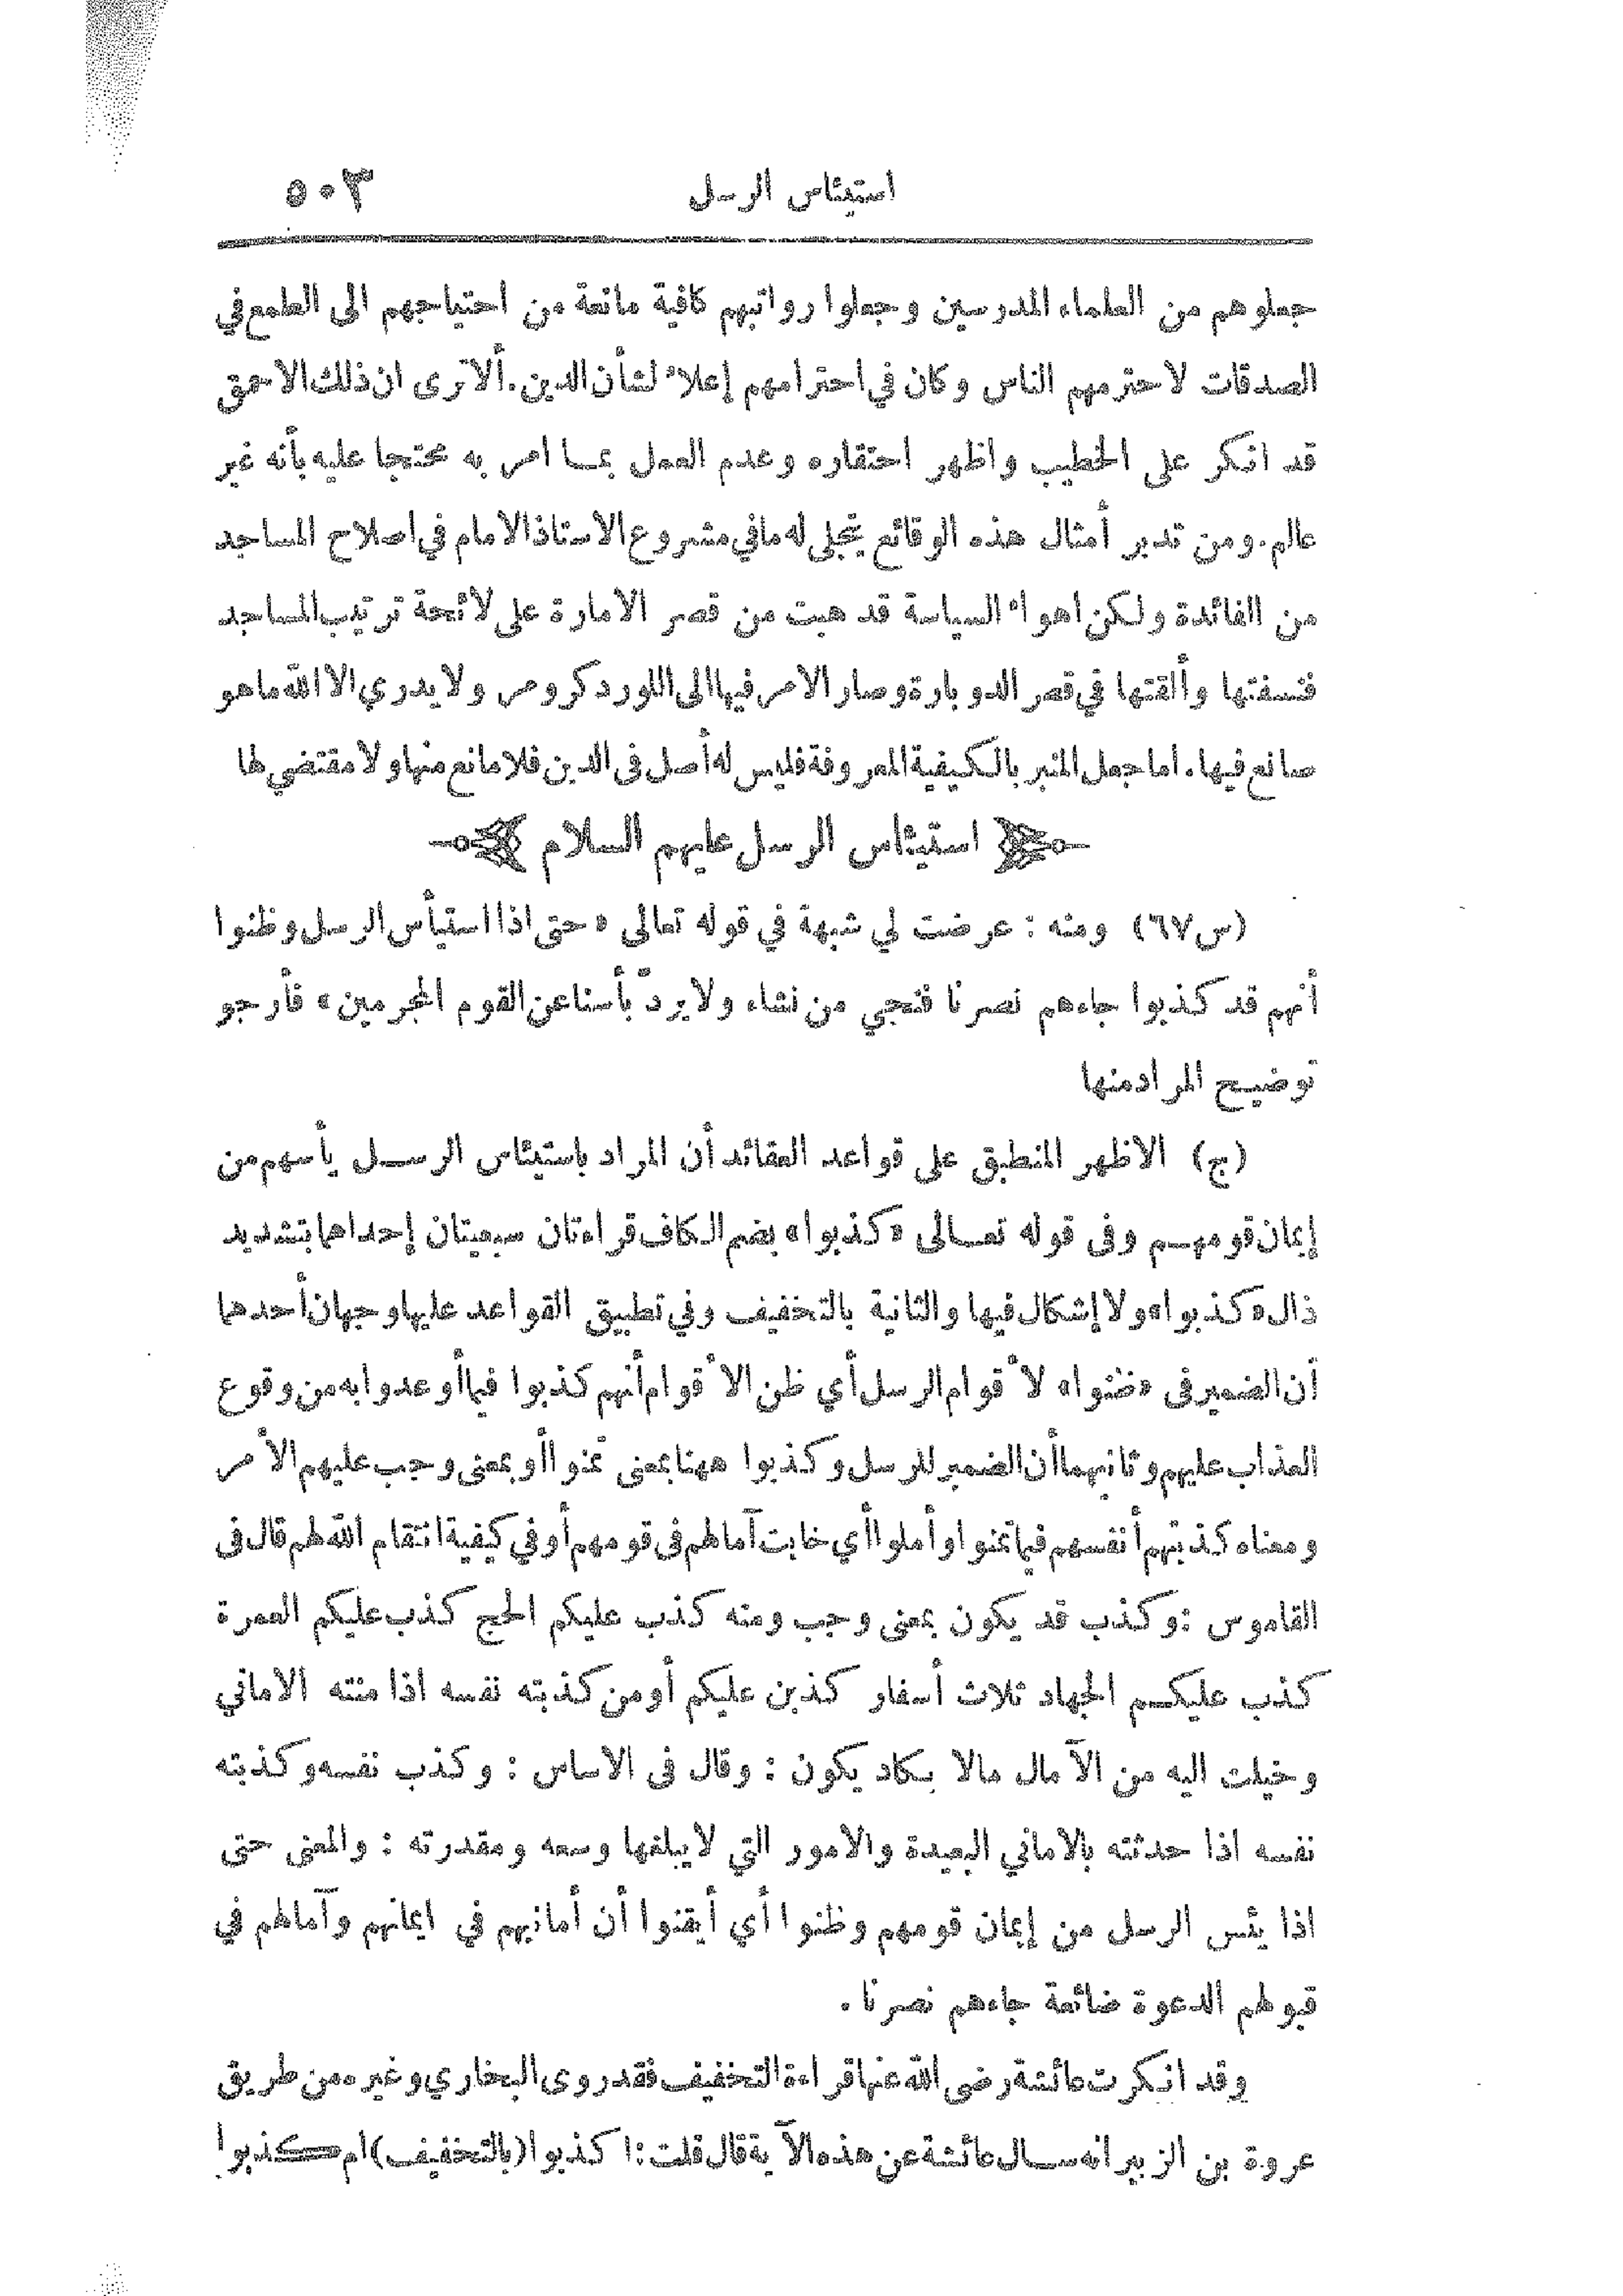 استيئاس الرسل ٥٠٣
جعلوهم من العلماء المدرسين وجعلوا رواتبهم كافية مانعة من احتياجهم الى الطمع في
الصدقات لاحترمهم الناس وكان في احترامهم إعلاء لشأن الدين. ألا ترى ان ذلك الاحمق
قد انكر على الخطيب واظهر احتقاره وعدم العمل بما امر به محتجا عليه بأنه غير
عالم. ومن تدبر أمثال هذه الوقائع يتجلى له ما في مشروع الاستاذ الامام في اصلاح المساجد
من الفائدة ولكن اهواء السياسة قد هبت من قصر الامارة على لائحة ترتيب المساجد
فنسفتها وألقتها في قصر الدوبارة وصار الامر فيها الى اللورد كرومر ولا يدري الا الله ما هو
صانع فيها. اما جعل المنبر بالكيفية المعروفة فليس له أصل فى الدين فلا مانع منها ولا مقتضي لها
استيئاس الرسل عليهم السلام
(س٦٧) ومنه : عرضت لي شبهة في قوله تعالى « حتى اذا استيأس الرسل وظنوا
أنهم قد كذبوا جاءهم نصرنا فنجي من نشاء ولا يردّ بأسنا عن القوم المجرمين » فأرجو
توضيح المراد منها
(ج) الاظهر المنطبق على قواعد العقائد أن المراد باستيئاس الرسل يأسهم من
إيمان قومهم وفى قوله تعالى « كذبوا » بضم الكاف قراءتان سبعيتان إحداهما بتشديد
ذال « كذبوا » ولا إشكال فيها والثانية بالتخفيف وفي تطبيق القواعد عليها وجهان أحدهما
أن الضمير فى « ظنوا » لأقوام الرسل أي ظن الأقوام أنهم كذبوا فيما أوعدوا به من وقوع
العذاب عليهم وثانيهما أن الضمير للرسل وكذبوا ههنا بمعنى تمنوا أو بمعنى وجب عليهم الأمر
ومعناه كذبتهم أنفسهم فيما تمنوا وأملوا أي خابت آمالهم فى قومهم أو في كيفية انتقام الله لهم قال فى
القاموس : وكذب قد يكون بمعنى وجب ومنه كذب عليكم الحج كذب عليكم العمرة
كذب عليكم الجهاد ثلاث أسفار كذبن عليكم أو من كذبته نفسه اذا منته الاماني
وخيلت اليه من الآمال مالا يكاد يكون : وقال فى الاساس : وكذب نفسه وكذبته
نفسه اذا حدثته بالاماني البعيدة والامور التي لا يبلغها وسعه ومقدرته : والمعنى حتى
اذا يئس الرسل من إيمان قومهم وظنوا أي أيقنوا أن أمانيهم في ايمانهم وآمالهم في
قبولهم الدعوة ضائعة جاءهم نصرنا .
وقد انكرت عائشة رضى الله عنها قراءة التخفيف فقد روى البخاري وغيره من طريق
عروة بن الزبير انه سال عائشة عن هذه الآية قال قلت : ا كذبوا (بالتخفيف) ام كذبوا